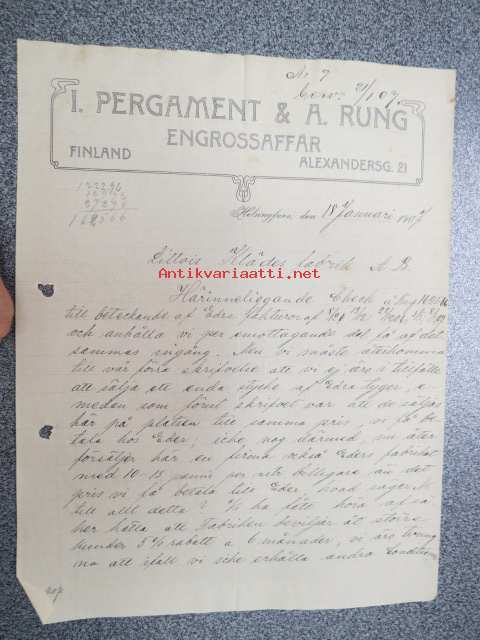 No 7
I. PERGAMENT & A. RUNG
ENGROSSAFFÄR
FINLAND
ALEXANDERSG. 21
Helsingfors, den 18 Januari 1907
Littois Klädes fabrik A. B.
Antikvariaatti.net
Härinneliggande Check
till betäckande af Edra fakturor af
och anhålla vi per emottagande det få af det
sammas ingång. Men vi måste återkomma
till vår förra skrifvelse att vi ej äro i tillfälle
att sälja ett enda stycke af Edra tyger, e-
meden som förut skrifvet var att de säljas
här på platsen till samma pris vi få be-
tala hos Eder, icke nog därmed, nu åter-
försäljer här en firma också Eders fabrikat
med 10-15 penni per mtr billigare än det
pris vi få betala till Eder, hvad säger Ni
till allt detta? Vi ha fått höra af sä-
ker källa att Fabriken beviljar åt större
kunder 5% rabatt a 6 månader, vi äro tvung-
na att ifall vi icke erhålla andra Conditio